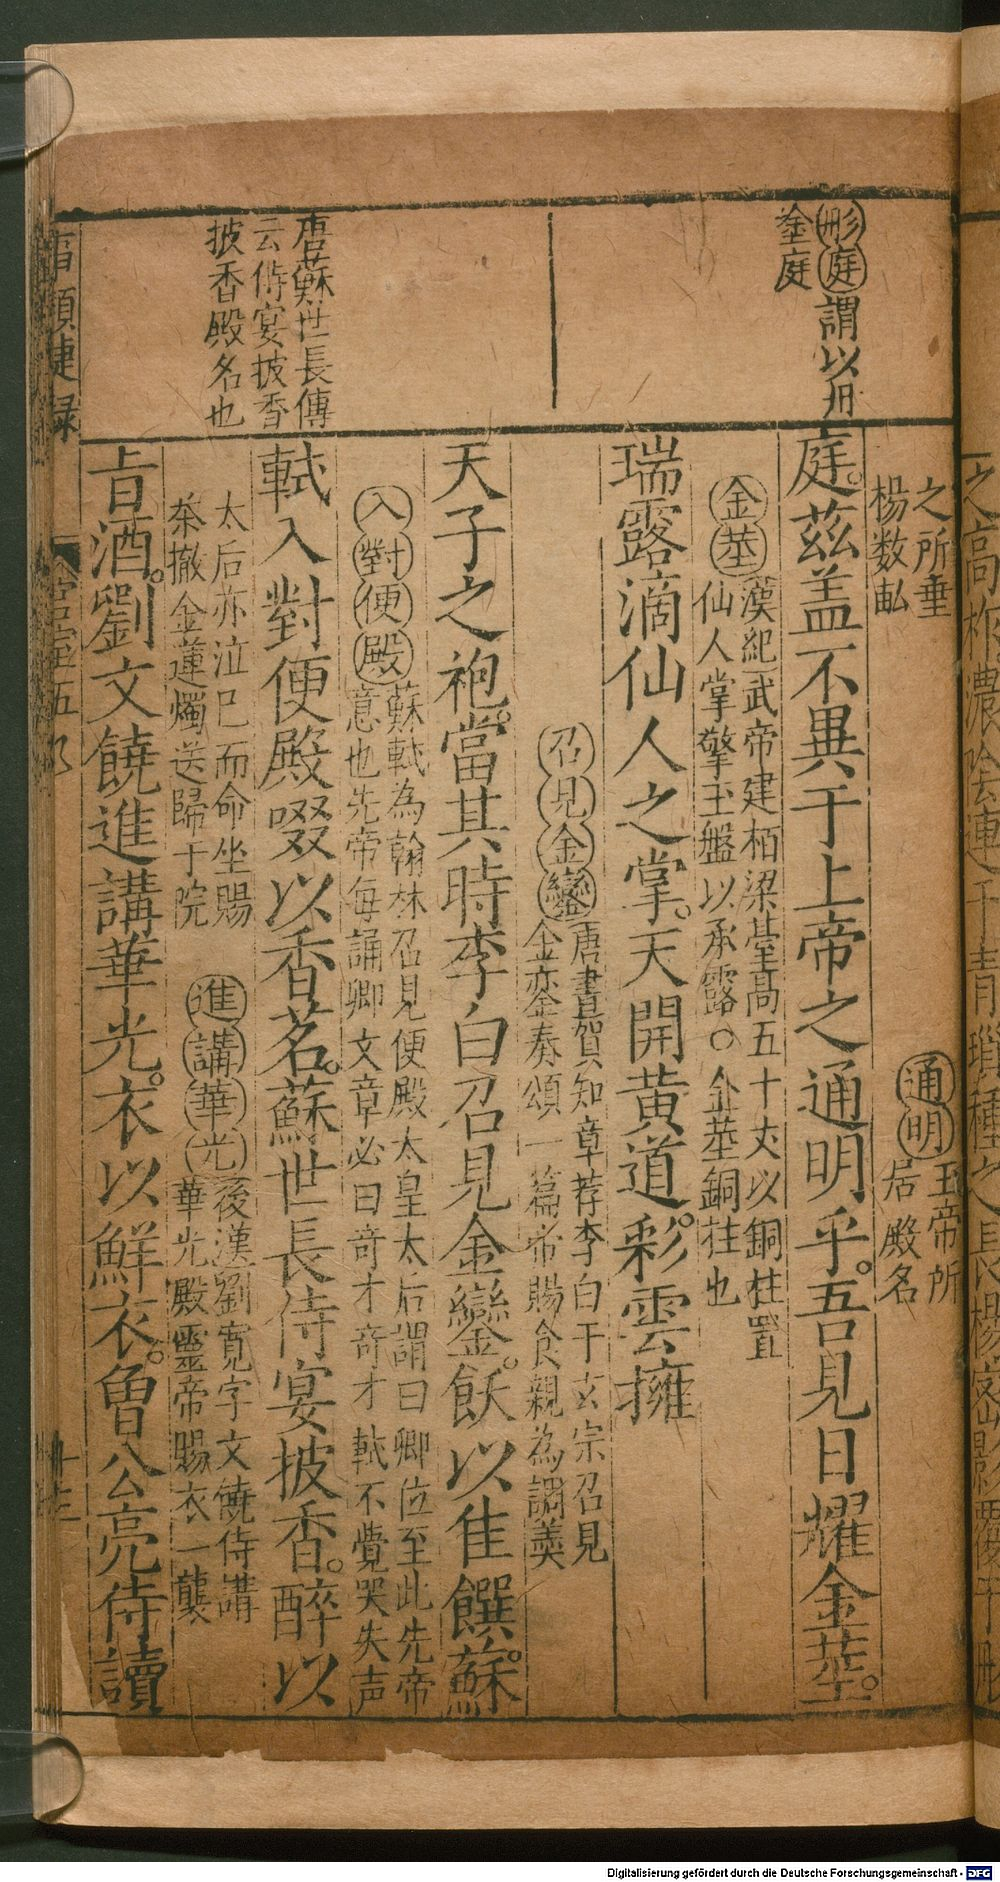 彤庭謂以丹
塗庭
唐蘇世長傳
云侍宴披香
披香殿名也
之所垂
楊数畆
通明
玉帝所
居殿名
庭。茲盖不異于上帝之通明乎。吾見日耀金莖。
金莖
漢紀武帝建栢梁臺高五十丈以銅柱置
仙人掌擎玉盤以承露○金莖銅柱也
瑞露滴仙人之掌。天開黃道。彩雲擁
召見金鑾
唐書賀知章荐李白于玄宗召見
金鑾奏頌一篇帝賜食親為調羹
天子之袍。當其時李白召見金鑾。飫以隹饌。蘇
入對便殿
蘇軾為翰林召見便殿太皇太后謂曰卿位至此先帝
意也先帝每誦卿文章必曰奇才奇才軾不覺哭失声
軾入對便殿啜以香茗。蘇世長侍宴披香。醉以
太后亦泣巳而命坐賜
茶撤金蓮燭送歸于院
進講華光
後漢劉寬字文饒侍講
華光殿靈帝賜衣一襲
旨酒。劉文饒進講華光。衣以鮮衣。魯公亮侍讀
事類捷録
宮室五九
Digitalisierung gefördert durch die Deutsche Forschungsgemeinschaft - DFG